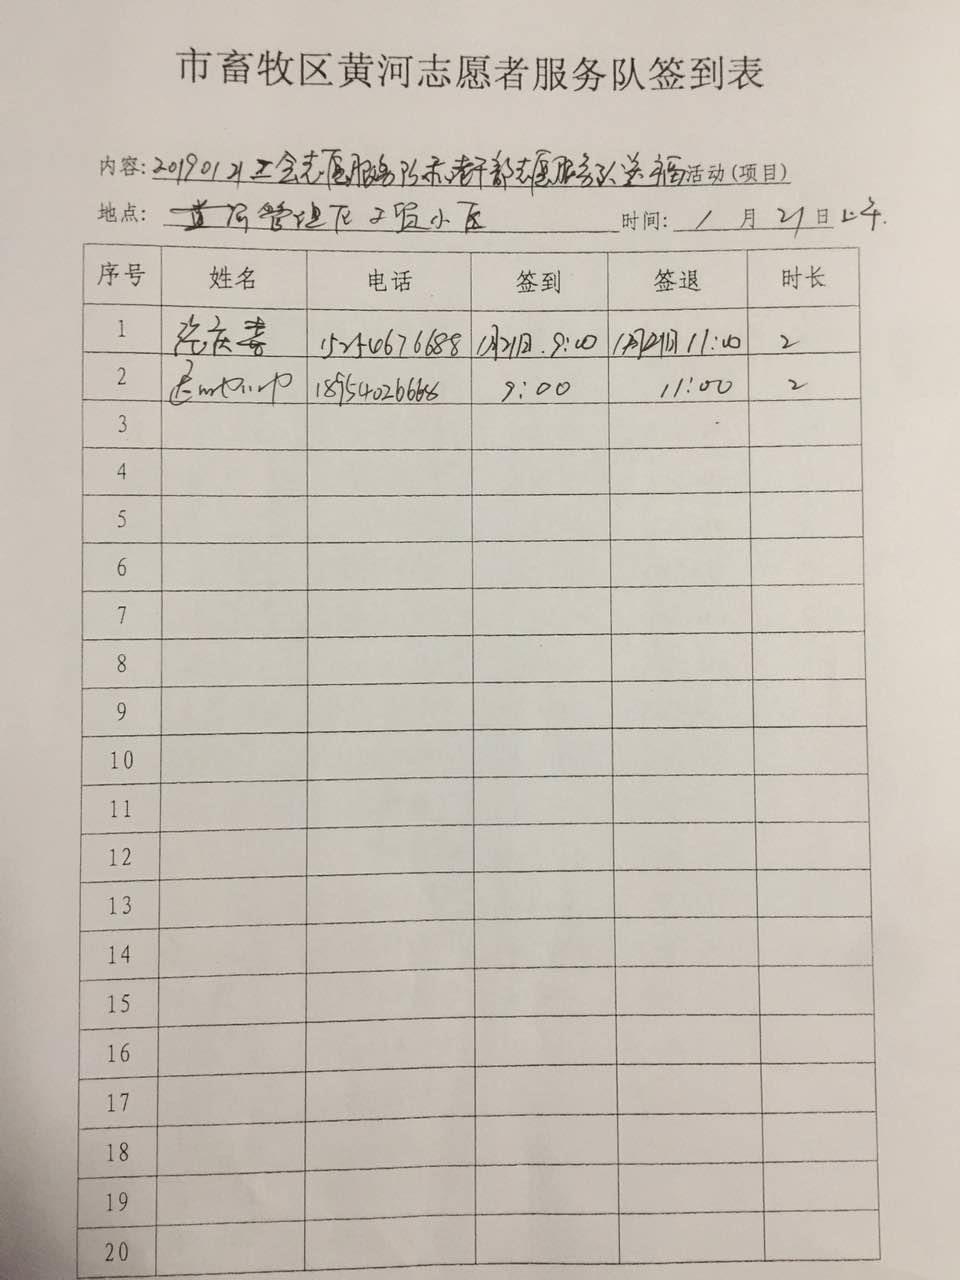 市畜牧区黄河志愿者服务队签到表
内容: 20190121工会志愿服务队和老干部志愿服务队送福活动(项目)
地点: 黄河管理区工贸小区 时间: 1月21日上午.
序号 姓名 电话 签到 签退 时长
1 庆春 15254676688 1月21日.9:00 1月21日11:00 2
2 18954026668 9:00 11:00 2
3
4
5
6
7
8
9
10
11
12
13
14
15
16
17
18
19
20